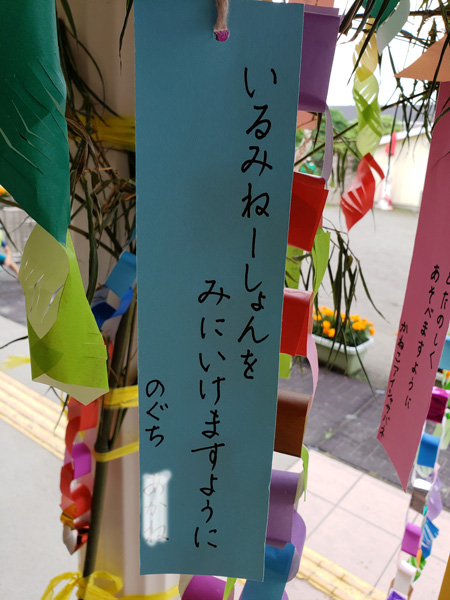 いるみねーしょんを
みにいけますように
のぐち
とたのしく
あそべますように